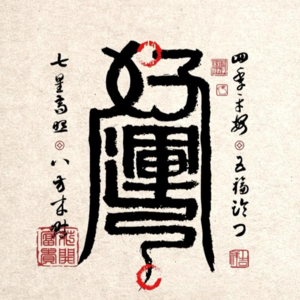 四季平安 五福临门
好運
七星高照 八方来财
花開富貴